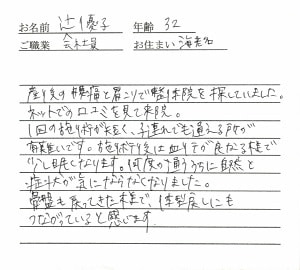 お名前 辻優子 年齢 32
ご職業 会社員 お住まい 海老名
産後の腰痛と肩こりで整体院を探していました。
ネットでの口コミを見て来院。
1回の施術が長く、子連れでも通える所が
有難いです。施術後は血行が良くなる様で
少し眠くなります。何度か通ううちに自然と
症状が気にならなくなりました。
骨盤も戻ってきた様で、体型戻しにも
つながっていると感じます。